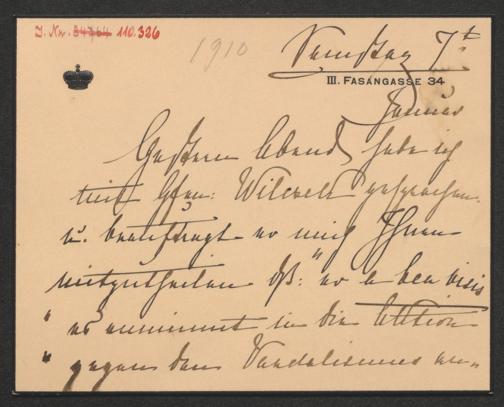 J. Nr. 34764 110.326
1910
Samstag 7t
III. FASANGASSE 34
Januar
Gestern Abend habe ich
mit Gfen: Wilczek gesprochen.
u. beauftragt er mich Ihnen
mitzutheilen dß: "er
" es annimmt in die Aktion
" gegen den Vandalismus